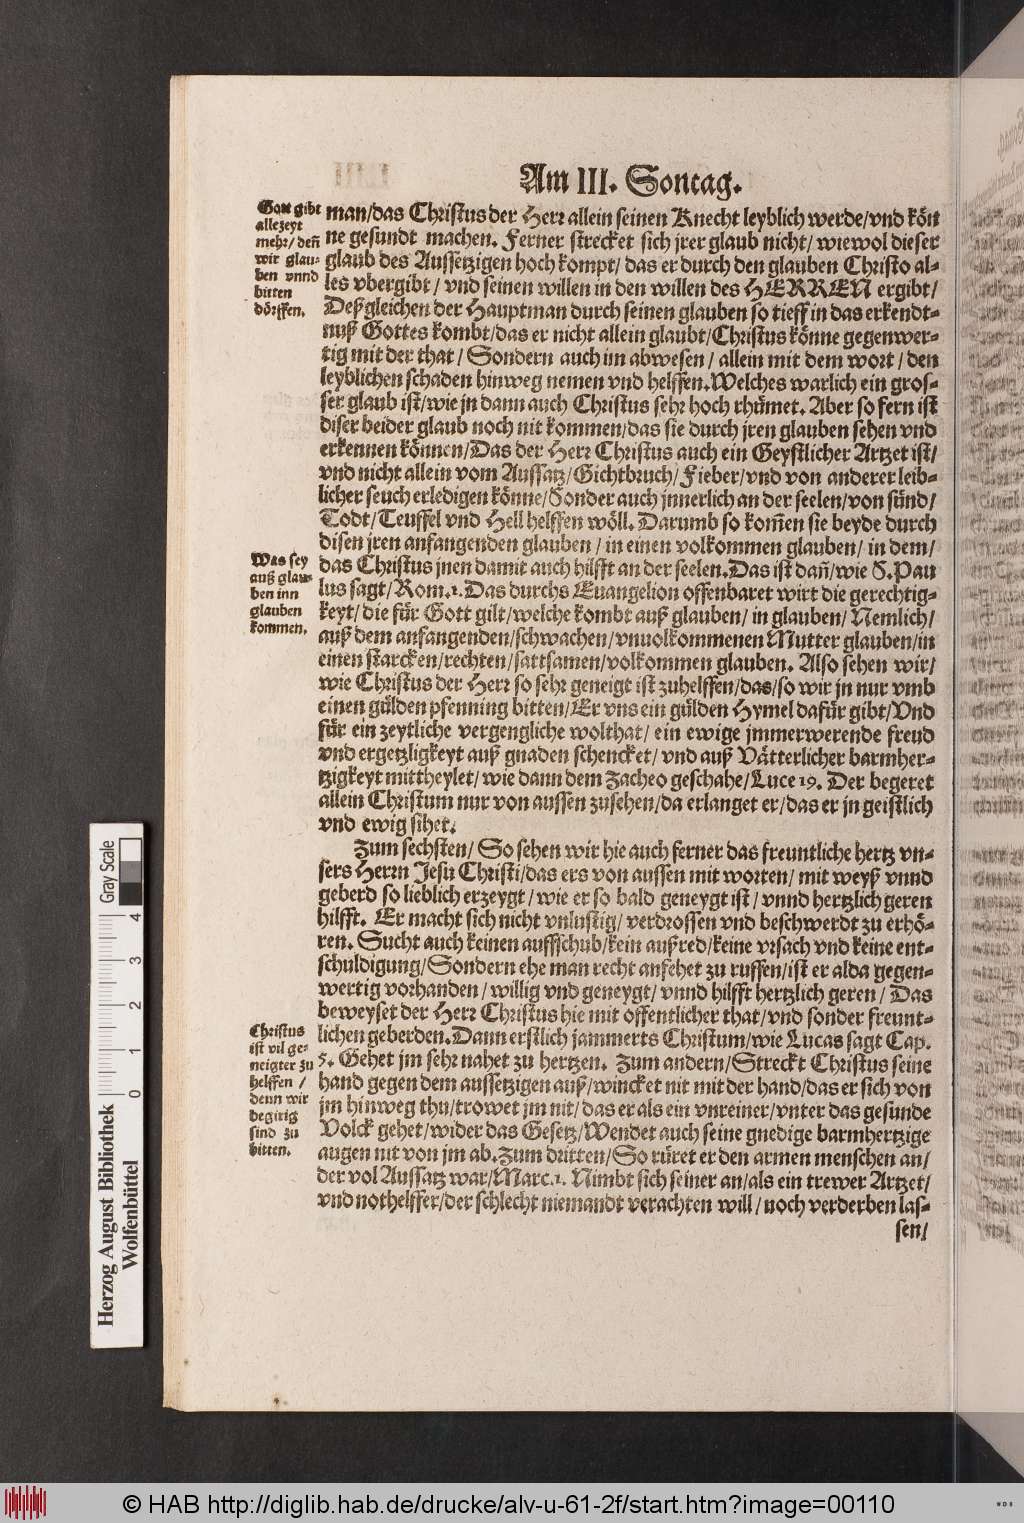 Am III. Sontag.
Gott gibt
allezeyt
mehr/ deñ
wir glau-
ben vnnd
bitten
dörffen.
man/das Christus der Herr allein seinen Knecht leyblich werde/vnd kön
ne gesundt machen. Ferner strecket sich jrer glaub nicht/ wiewol dieser
glaub des Aussetzigen hoch kompt/ das er durch den glauben Christo al-
les vbergibt/ vnd seinen willen in den willen des HERREN ergibt/
Deßgleichen der Hauptman durch seinen glauben so tieff in das erkendt-
nuß Gottes kombt/das er nicht allein glaubt/Christus könne gegenwer-
tig mit der that/ Sondern auch im abwesen/ allein mit dem wort/ den
leyblichen schaden hinweg nemen vnd helffen. Welches warlich ein gros-
ser glaub ist/wie jn dann auch Christus sehr hoch rhümet. Aber so fern ist
diser beider glaub noch nit kommen/das sie durch jren glauben sehen vnd
erkennen können/Das der Herr Christus auch ein Geystlicher Artzet ist/
vnd nicht allein vom Aussatz/Gichtbruch/Fieber/vnd von anderer leib-
licher seuch erledigen könne/Sonder auch jnnerlich an der seelen/von sünd/
Todt/Teuffel vnd Hell helffen wöll. Darumb so kom̃en sie beyde durch
disen jren anfangenden glauben/ in einen volkommen glauben/ in dem/
Was sey
auß glau-
ben inn
glauben
kommen.
das Christus jnen damit auch hilfft an der seelen. Das ist dañ/wie S. Pau
lus sagt/Rom.1. Das durchs Euangelion offenbaret wirt die gerechtig-
keyt/ die für Gott gilt/welche kombt auß glauben/ in glauben/ Nemlich/
auß dem anfangenden/schwachen/vnuolkommenen Mutter glauben/in
einen starcken/rechten/sattsamen/volkommen glauben. Also sehen wir/
wie Christus der Herr so sehr geneigt ist zuhelffen/das/so wir jn nur vmb
einen gülden pfenning bitten/Er vns ein gülden Hymel dafür gibt/Vnd
für ein zeytliche vergengliche wolthat/ ein ewige jmmerwerende freud
vnd ergetzligkeyt auß gnaden schencket/ vnd auß Vätterlicher barmher-
tzigkeyt mittheylet/ wie dann dem Zacheo geschahe/Luce 19. Der begeret
allein Christum nur von aussen zusehen/da erlanget er/das er jn geistlich
vnd ewig sihet.
Zum sechsten/ So sehen wir hie auch ferner das freuntliche hertz vn-
sers Herrn Jesu Christi/das ers von aussen mit worten/ mit weyß vnnd
geberd so lieblich erzeygt/ wie er so bald geneygt ist/ vnnd hertzlich geren
hilfft. Er macht sich nicht vnlustig/ verdrossen vnd beschwerdt zu erhö-
ren. Sucht auch keinen auffschub/kein außred/keine vrsach vnd keine ent-
schuldigung/Sondern ehe man recht anfehet zu ruffen/ist er alda gegen-
wertig vorhanden/ willig vnd geneygt/ vnnd hilfft hertzlich geren/ Das
beweyset der Herr Christus hie mit offentlicher that/vnd sonder freunt-
Christus
ist vil ge-
neigter zu
helffen /
denn wir
begirig
sind zu
bitten.
lichen geberden. Dann erstlich jammerts Christum/wie Lucas sagt Cap.
5. Gehet jm sehr nahet zu hertzen. Zum andern/Streckt Christus seine
hand gegen dem aussetzigen auß/wincket nit mit der hand/das er sich von
jm hinweg thu/trowet jm nit/ das er als ein vnreiner/vnter das gesunde
Volck gehet/wider das Gesetz/Wendet auch seine gnedige barmhertzige
augen nit von jm ab. Zum dritten/So rüret er den armen menschen an/
der vol Aussatz war/Marc.1. Nimbt sich seiner an/als ein trewer Artzet/
vnd nothelffer/der schlecht niemandt verachten will/ noch verderben las-
sen/
Herzog August Bibliothek
Wolfenbüttel
0 1 2 3 4
Gray Scale
© HAB http://diglib.hab.de/drucke/alv-u-61-2f/start.htm?image=00110